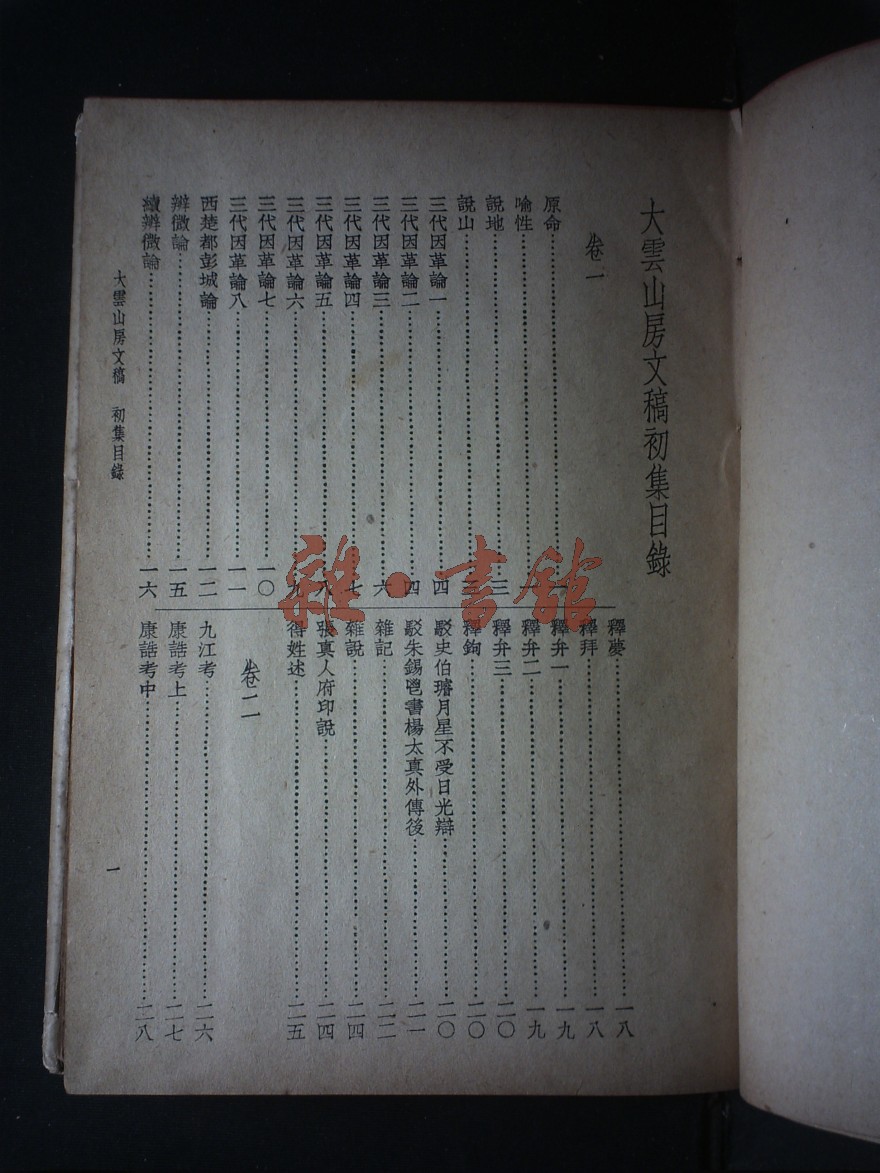 大雲山房文稿初集目錄
卷一
原命
喻性
說地 三
說山
三代因革論一 四
三代因革論二 四
三代因革論三 六
三代因革論四 七
三代因革論五 八
三代因革論六 九
三代因革論七 一〇
三代因革論八 一一
西楚都彭城論 一二
辨微論 一五
續辨微論 一六
釋夢 一八
釋拜 一八
釋弁一 一九
釋弁二 一九
釋弁三 二〇
釋鉤 二〇
駁史伯璿月星不受日光辯 二〇
駁朱錫鬯書楊太真外傳後 二一
雜記 二二
雜說 二四
張真人府印說 二四
得姓述 二五
卷二
九江考 二六
康誥考上 二七
康誥考中 二八
大雲山房文稿 初集目錄
一
雜·書館